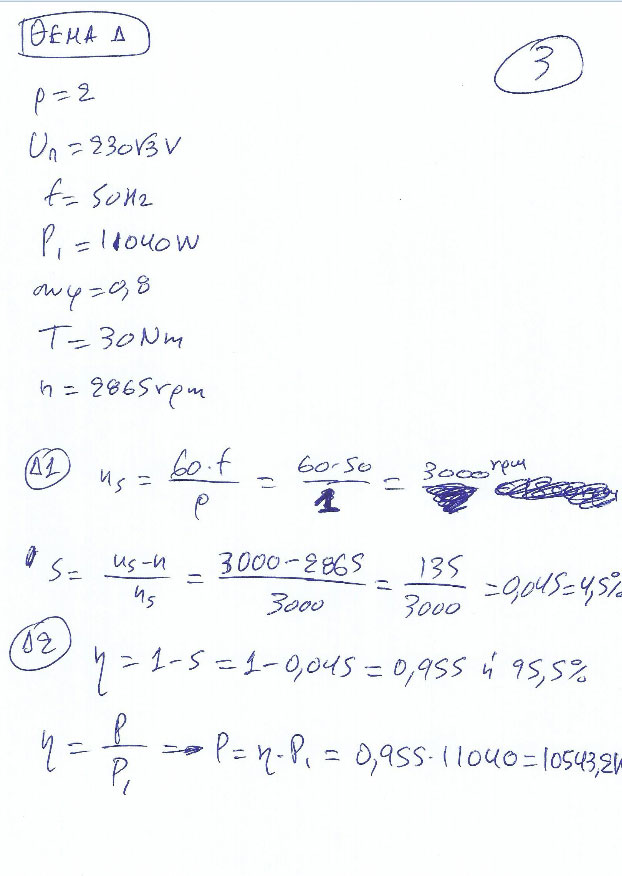 ΘΕΜΑ Δ
3
p=2
Uπ=230√3 V
f=50Hz
P₁=11040W
συνφ=0,8
T=30Nm
n=2865rpm
Δ1 ns = 60·f / p = 60·50 / 1 = 3000 rpm
s= ns-n / ns = 3000-2865 / 3000 = 135 / 3000 =0,045=4,5%
Δ2
η=1-s=1-0,045=0,955 ή 95,5%
η = P / P₁ ⇒ P=η·P₁ = 0,955·11040=10543,2W